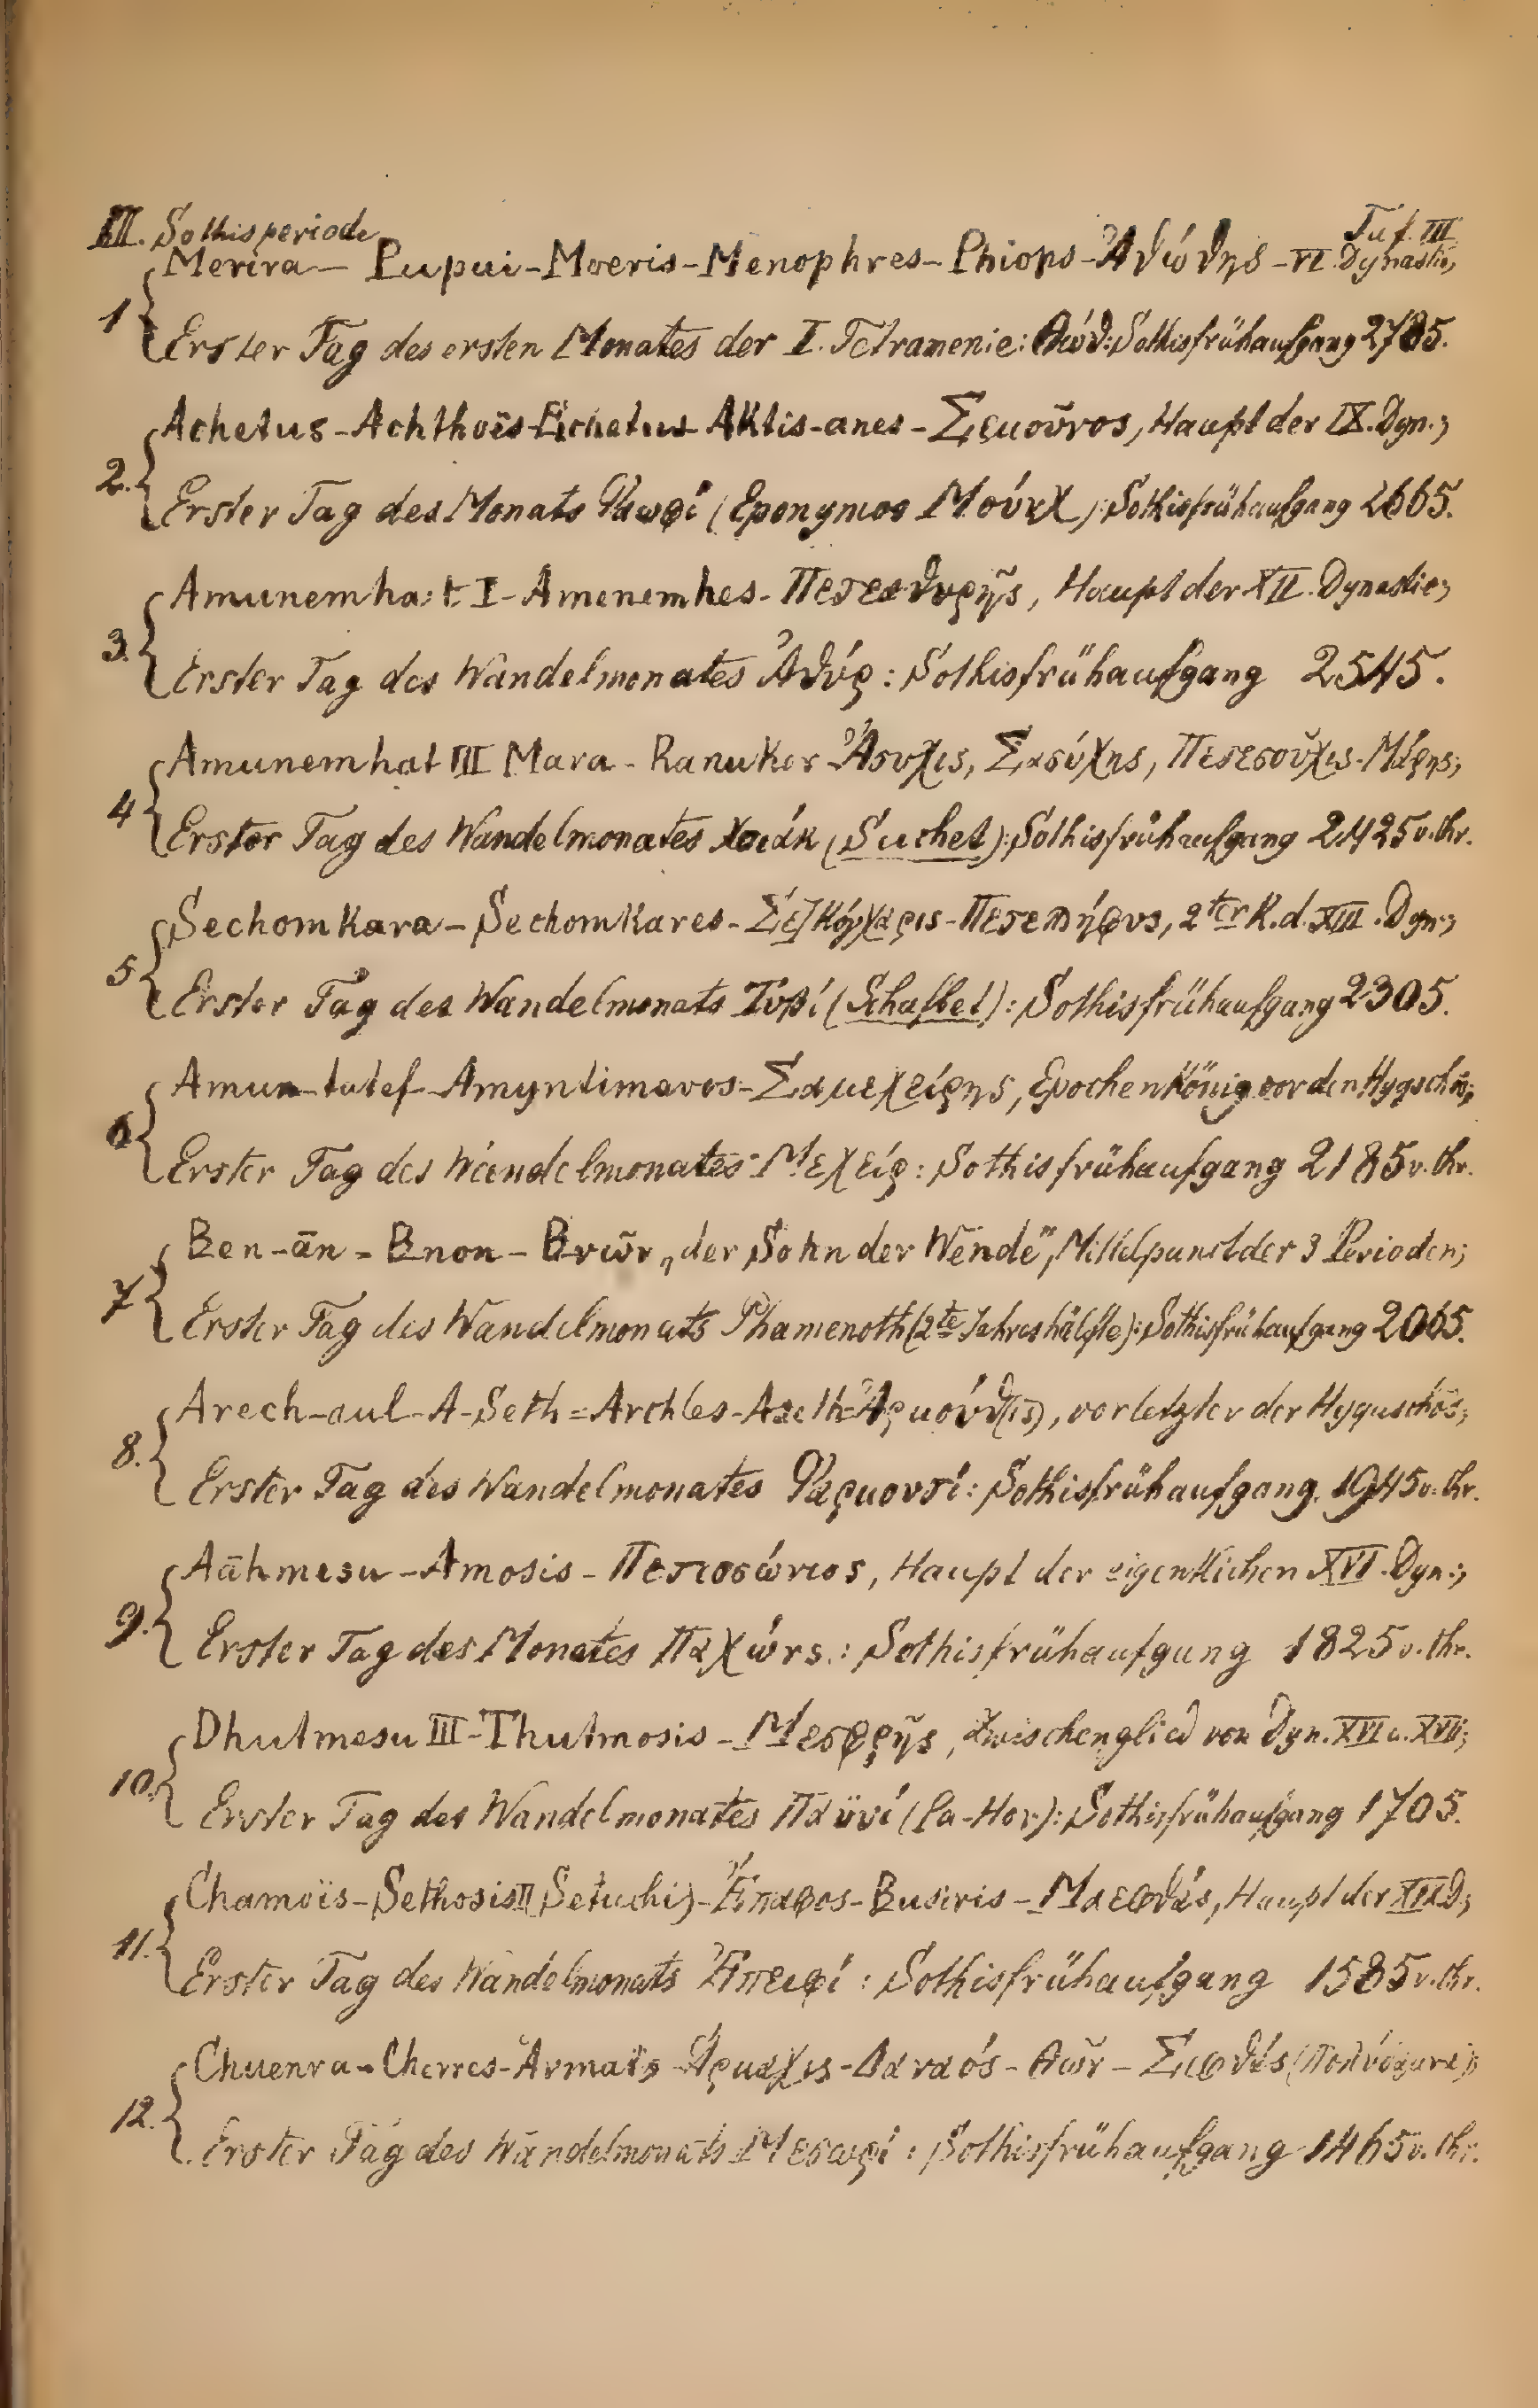 III. Sothisperiode Taf. III
Merira – Pupui – Moeris – Menophres – Phiops – Ἀθώθης – VI. Dynastie;
1 Erster Tag des ersten Monates der I. Tetramenie: Θώθ: Sothisfrühaufgang 2785.
Achetus – Achthoës – Echetus – Aktis-anes – Σεμοῦνος, Haupt der IX. Dyn.;
2. Erster Tag des Monats Φαωφί (Eponymos Μούνχ): Sothisfrühaufgang 2665.
Amunemha:t I – Amenemhes – Πετεαθυρῆς, Haupt der XII. Dynastie;
3. Erster Tag des Wandelmonates Ἀθύρ: Sothisfrühaufgang 2545.
Amunemhat III Mara – Ranuker Ἄσυχις, Σασύχης, Πετεσοῦχις – Μάρης;
4 Erster Tag des Wandelmonates Χοιάκ (Suchet): Sothisfrühaufgang 2425 v. Chr.
Sechomkara – Sechomkares – Σέ[γ]κόγχαρις – Πετεπήφυς, 2ter K. d. XIII. Dyn.;
5 Erster Tag des Wandelmonats Τυβί (Schafbet): Sothisfrühaufgang 2305.
Amun-tutef – Amyntimaeos – Σαμεχείρης, Epochenkönig vor den Hyqschōs;
6 Erster Tag des Wandelmonates Μεχείρ: Sothisfrühaufgang 2185 v. Chr.
Ben-ān = Bnon – Βνῶν „der Sohn der Wende", Mittelpunct der 3 Perioden;
7 Erster Tag des Wandelmonats Phamenoth (2te Jahreshälfte): Sothisfrühaufgang 2065.
Arech-aul – A-Seth = Archles – Aseth = Ἀρμούθ(ις), vorletzter der Hyquschōs;
8. Erster Tag des Wandelmonates Φαρμουτί: Sothisfrühaufgang 1945 v. Chr.
Aāhmesu – Amosis – Πετισώνιος, Haupt der eigentlichen XVI. Dyn.;
9. Erster Tag des Monates Παχώνς.: Sothisfrühaufgang 1825 v. Chr.
Dhutmesu III – Thutmosis – Μεσφρῆς, Zwischenglied von Dyn. XVI u. XVII;
10. Erster Tag des Wandelmonates Παϋνί (Pa-Hor): Sothisfrühaufgang 1705.
Chamoïs – Sethosis II Setuchis – Ἔπαφος – Busiris – Μαεφθάς, Haupt der XIX D;
11. Erster Tag des Wandelmonats Ἐπειφί: Sothisfrühaufgang 1585 v. Chr.
Chuenra – Cherres – Armaïs Ἅρμαχις – Δαναός – Θῶν – Σιφθάς
12. Erster Tag des Wandelmonats Μεσωρί: Sothisfrühaufgang 1465 v. Chr.